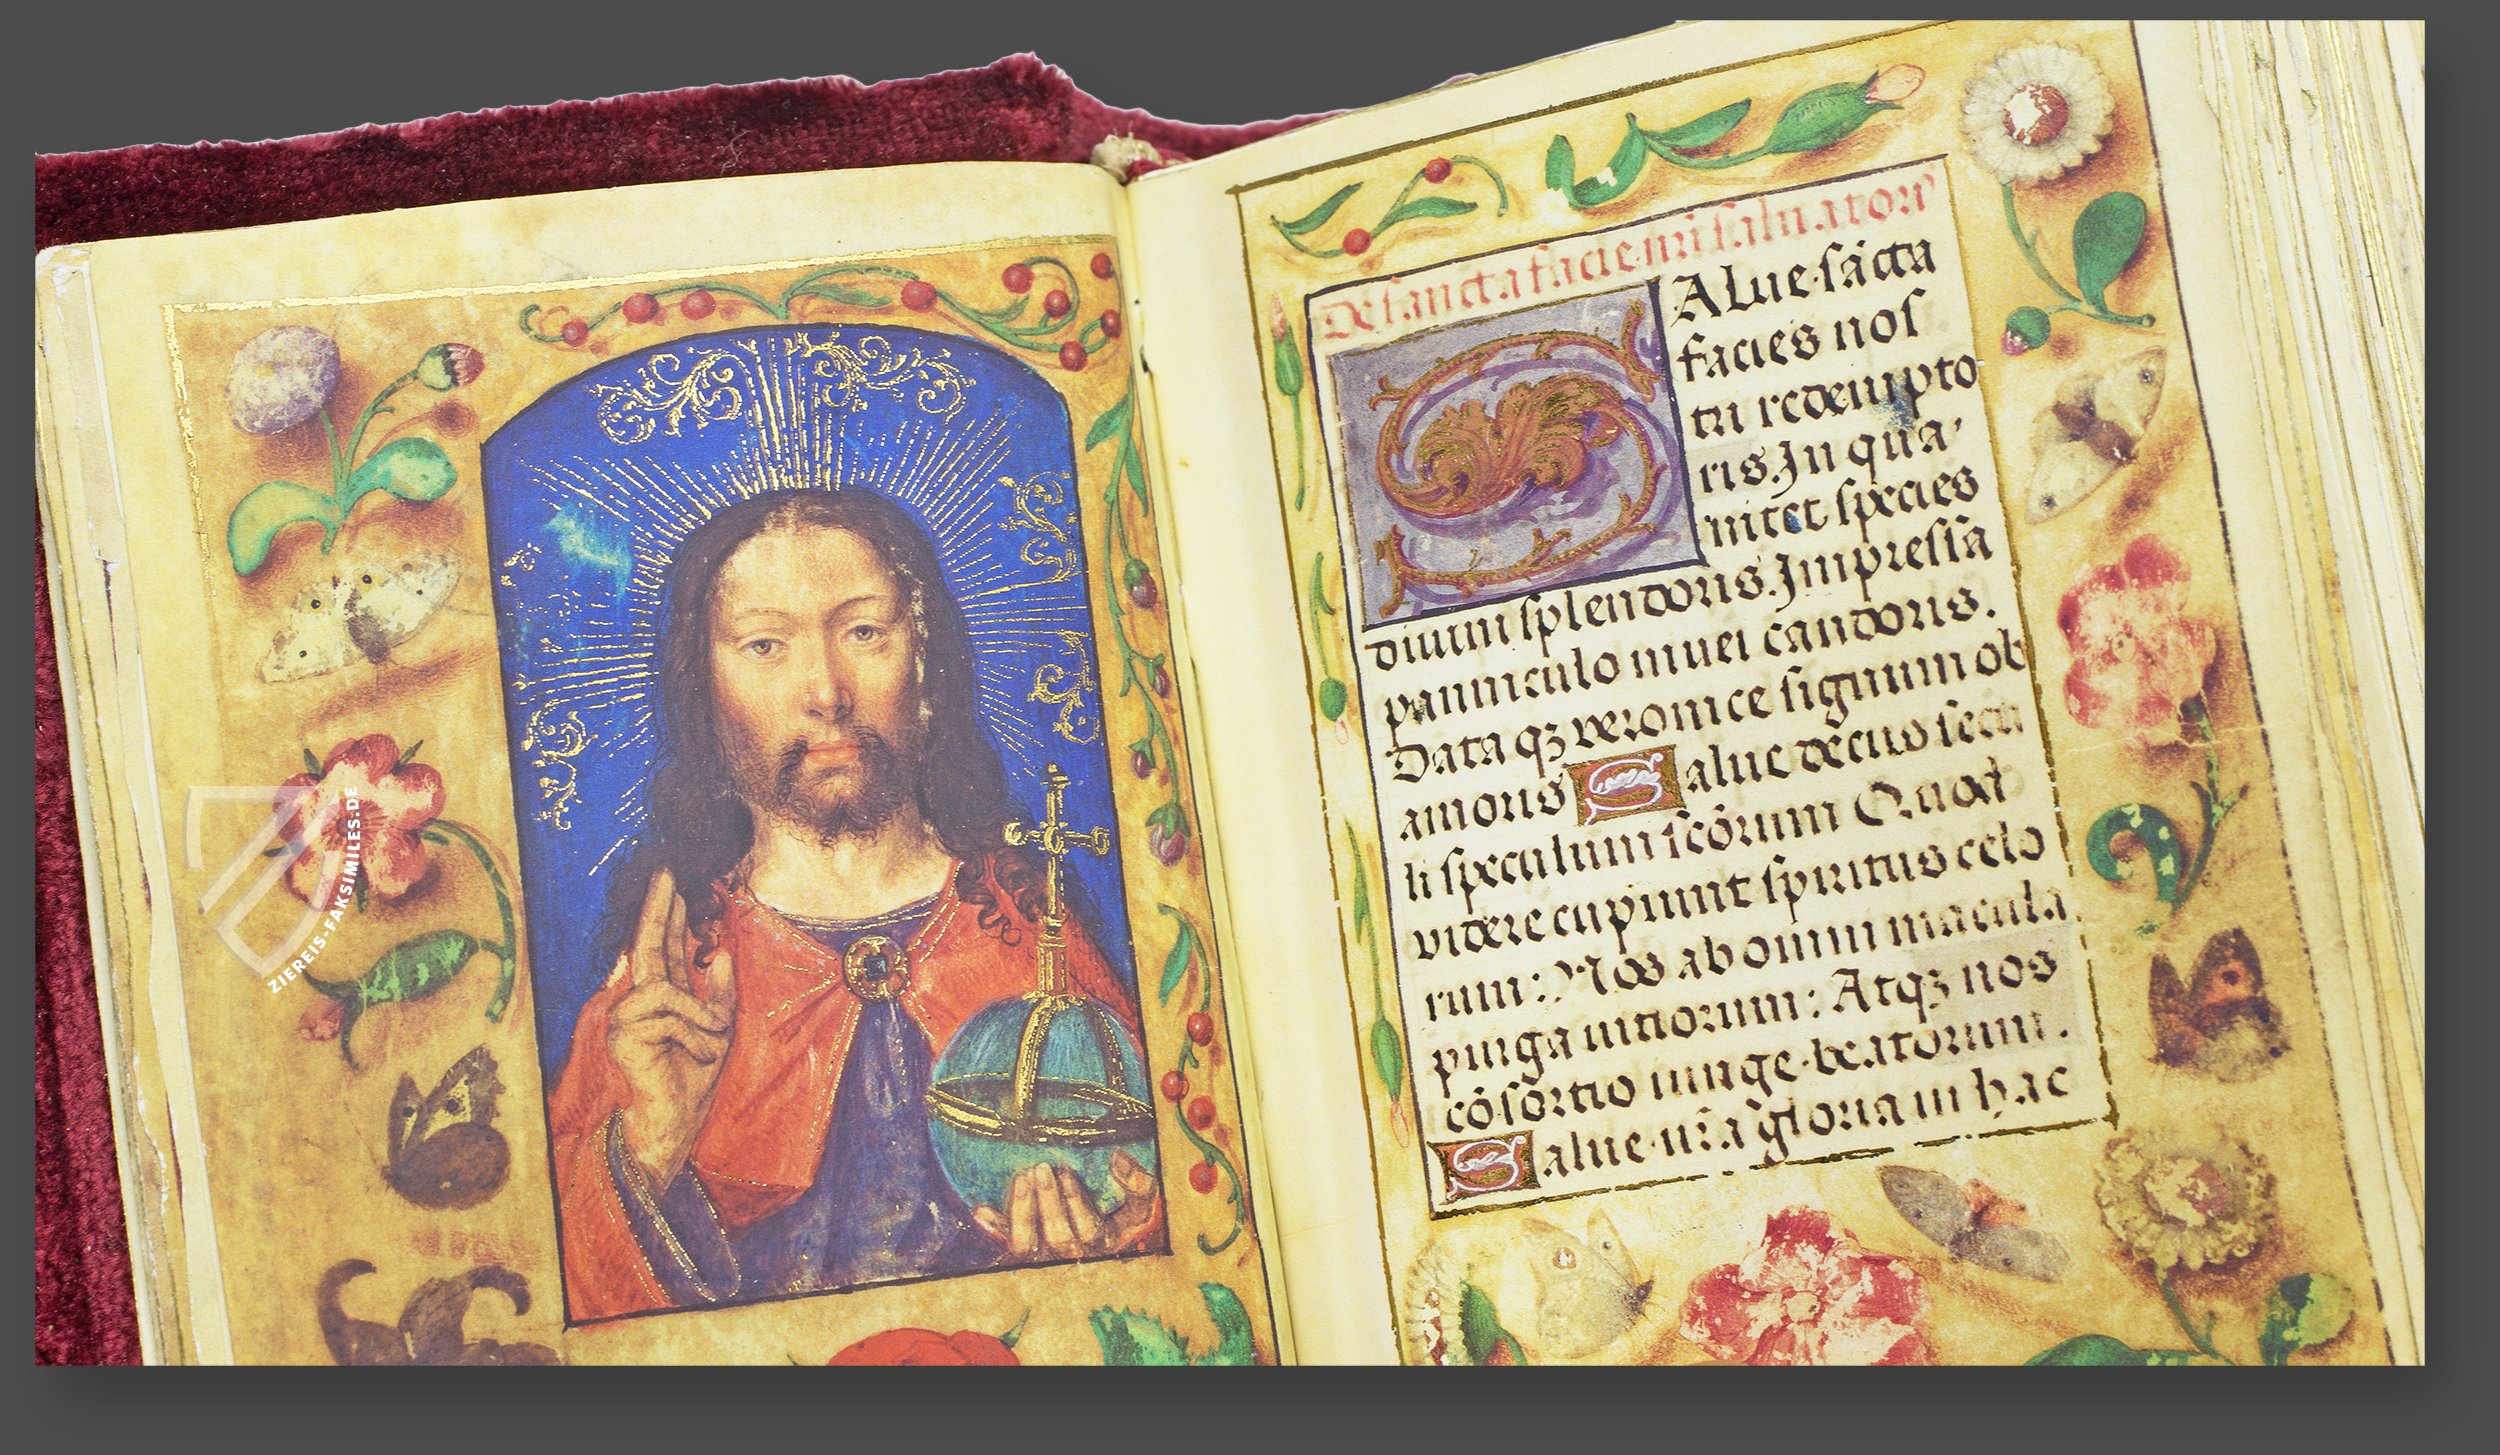 De sancta facie nr̃i saluatoris
SAlue sācta
facies nos
tri redempto
ris. In qua
nitet species
diuini splendoris. Impressa
panniculo niuei candoris.
Data qꝫ veronice signum ob
amoris Salue decus seculi
li speculum scōrum Quod
videre cupiunt spiritus celo
rum: Nos ab omni macula
purga uitiorum: Atqꝫ nos
cōsortio iunge beatorum.
Salue nr̃a gloria in hac
ZIEREIS-FAKSIMILES.DE